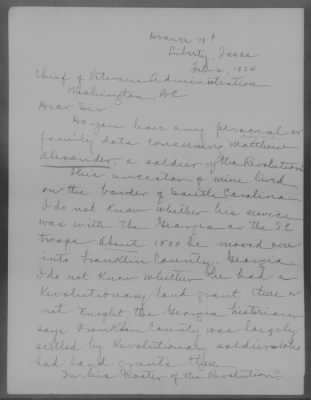 Drawer 719
Liberty, Texas
Feb 2, 1934
Chief of Veterans Administration
Washington, DC
Dear Sir:
Do you have any personal or
family data concerning Matthew
Alexander, a soldier of the Revolution
This ancestor of mine lived
on the border of South Carolina
I do not know whether his service
was with the Georgia or the S.C.
troops. About 1800 he moved over
into Franklin County, Georgia
I do not know whether he had a
Revolutionary land grant there or
not Knight, the Georgia historian,
says Franklin County was largely
settled by Revolutionary soldiers who
had land grants there
In his "Roster of the Revolution",